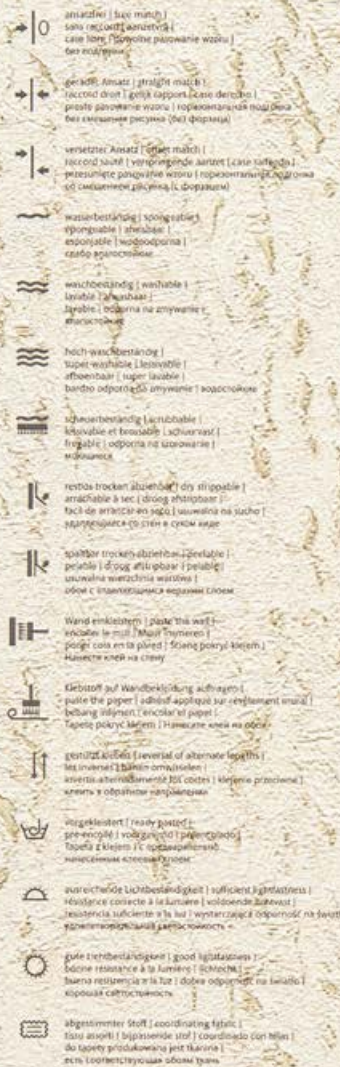 ansatzfrei | free match |
sans raccord | aanzetvrij |
case libre | dowolne pasowanie wzoru |
без подгонки
gerader Ansatz | straight match |
raccord droit | gelijk rapport | case derecho |
proste pasowanie wzoru | горизонтальная подгонка
без смещения рисунка (без форзаца)
versetzter Ansatz | offset match |
raccord sauté | verspringende aanzet | case salteado |
przesunięte pasowanie wzoru | горизонтальная подгонка
со смещением рисунка (с форзацем)
wasserbeständig | spongeable |
épongeable | afwasbaar |
esponjable | wodoodporna |
слабо влагостойкие
waschbeständig | washable |
lavable | afwasbaar |
lavable | odporna na zmywanie |
влагостойкие
hoch waschbeständig |
super-washable | lessivable |
afboenbaar | super lavable |
bardzo odporna na zmywanie | водостойкие
scheuerbeständig | scrubbable |
lessivable et brossable | schuurvast |
fregable | odporna na szorowanie |
моющиеся
restlos trocken abziehbar | dry strippable |
arrachable à sec | droog afstripbaar |
fácil de arrancar en seco | usuwalna na sucho |
удаляющиеся со стен в сухом виде
spaltbar trocken abziehbar | peelable |
pelable | droog afstripbaar | pelable |
usuwalna wierzchnia warstwa |
обои с отделяющимся верхним слоем
Wand einkleistern | paste the wall |
encoller le mur | Muur inlijmen |
poner cola en la pared | Ścianę pokryć klejem |
Нанести клей на стену
Klebstoff auf Wandbekleidung auftragen |
paste the paper | adhésif appliqué sur revêtement mural |
behang inlijmen | encolar el papel |
Tapetę pokryć klejem | Нанесите клей на обои
gestürzt kleben | reversal of alternate lengths |
les inverses | banen omwisselen |
invertir alternadamente los cortes | klejenie przeciwne |
клеить в обратном направлении
vorgekleistert | ready pasted |
pré-encollé | voorgelijmd | preencolado |
Tapeta z klejem | с предварительно
нанесенным клеевым слоем
ausreichende Lichtbeständigkeit | sufficient lightfastness |
résistance correcte à la lumière | voldoende lichtvast |
resistencia suficiente a la luz | wystarczająca odporność na światło
удовлетворительная светостойкость
gute Lichtbeständigkeit | good lightfastness |
bonne résistance à la lumière | lichtecht |
buena resistencia a la luz | dobra odporność na światło |
хорошая светостойкость
abgestimmter Stoff | coordinating fabric |
tissu assorti | bijpassende stof | coordinado con telas |
do tapety produkowana jest tkanina |
есть соответствующая обоям ткань